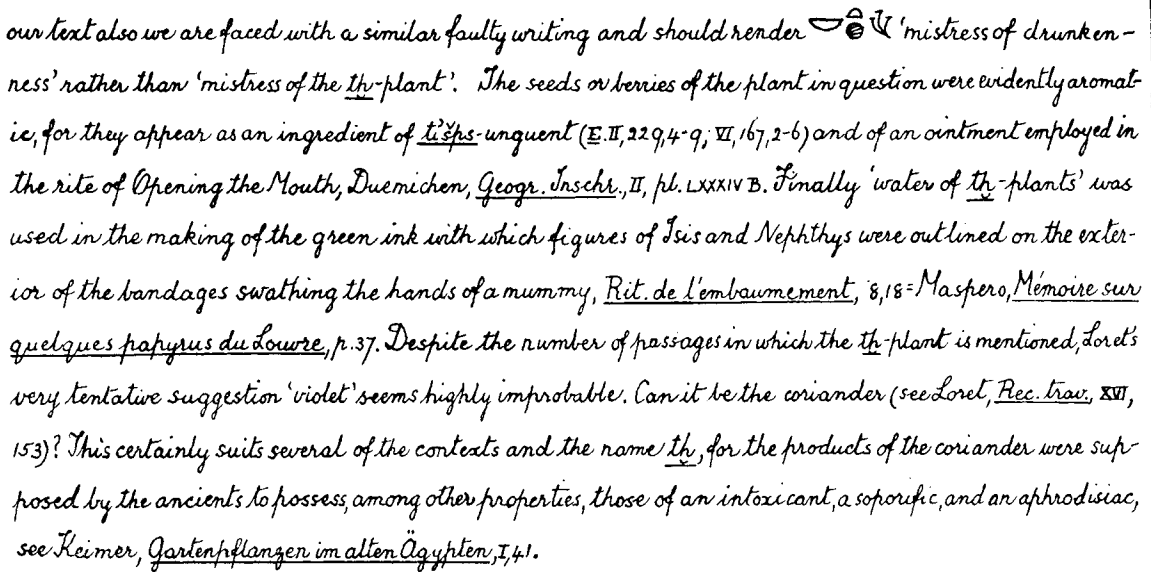 our text also we are faced with a similar faulty writing and should render 'mistress of drunken-
ness' rather than 'mistress of the tḫ-plant'. The seeds or berries of the plant in question were evidently aromat-
ic, for they appear as an ingredient of ti̓šps-unguent (E. II, 229, 4-9; VI, 167, 2-6) and of an ointment employed in
the rite of Opening the Mouth, Duemichen, Geogr. Inschr., II, pl. LXXXIV B. Finally 'water of tḫ-plants' was
used in the making of the green ink with which figures of Isis and Nephthys were outlined on the exter-
ior of the bandages swathing the hands of a mummy, Rit. de l'embaumement, 8, 18 = Maspero, Mémoire sur
quelques papyrus du Louvre, p. 37. Despite the number of passages in which the tḫ-plant is mentioned, Loret's
very tentative suggestion 'violet' seems highly improbable. Can it be the coriander (see Loret, Rec. trav., XVI,
153)? This certainly suits several of the contexts and the name tḫ, for the products of the coriander were sup-
posed by the ancients to possess, among other properties, those of an intoxicant, a soporific, and an aphrodisiac,
see Keimer, Gartenpflanzen im alten Ägypten, I, 41.